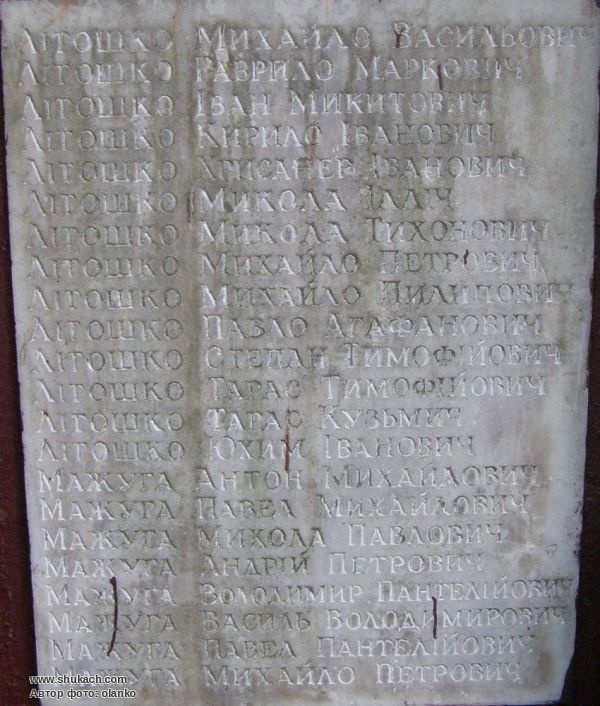 Літошко Михайло Васильович
Літошко Гаврило Маркович
Літошко Іван Микитович
Літошко Кирило Іванович
Літошко Хрисанер Іванович
Літошко Микола Ілліч
Літошко Микола Тихонович
Літошко Михайло Петрович
Літошко Михайло Пилипович
Літошко Павло Агафанович
Літошко Степан Тимофійович
Літошко Тарас Тимофійович
Літошко Тарас Кузьмич
Літошко Юхим Іванович
Мажуга Антон Михайлович
Мажуга Павел Михайлович
Мажуга Микола Павлович
Мажуга Андрій Петрович
Мажуга Володимир Пантелійович
Мажуга Василь Володимирович
Мажуга Павел Пантелійович
Мажуга Михайло Петрович
www.shukach.com
Автор фото: olanko